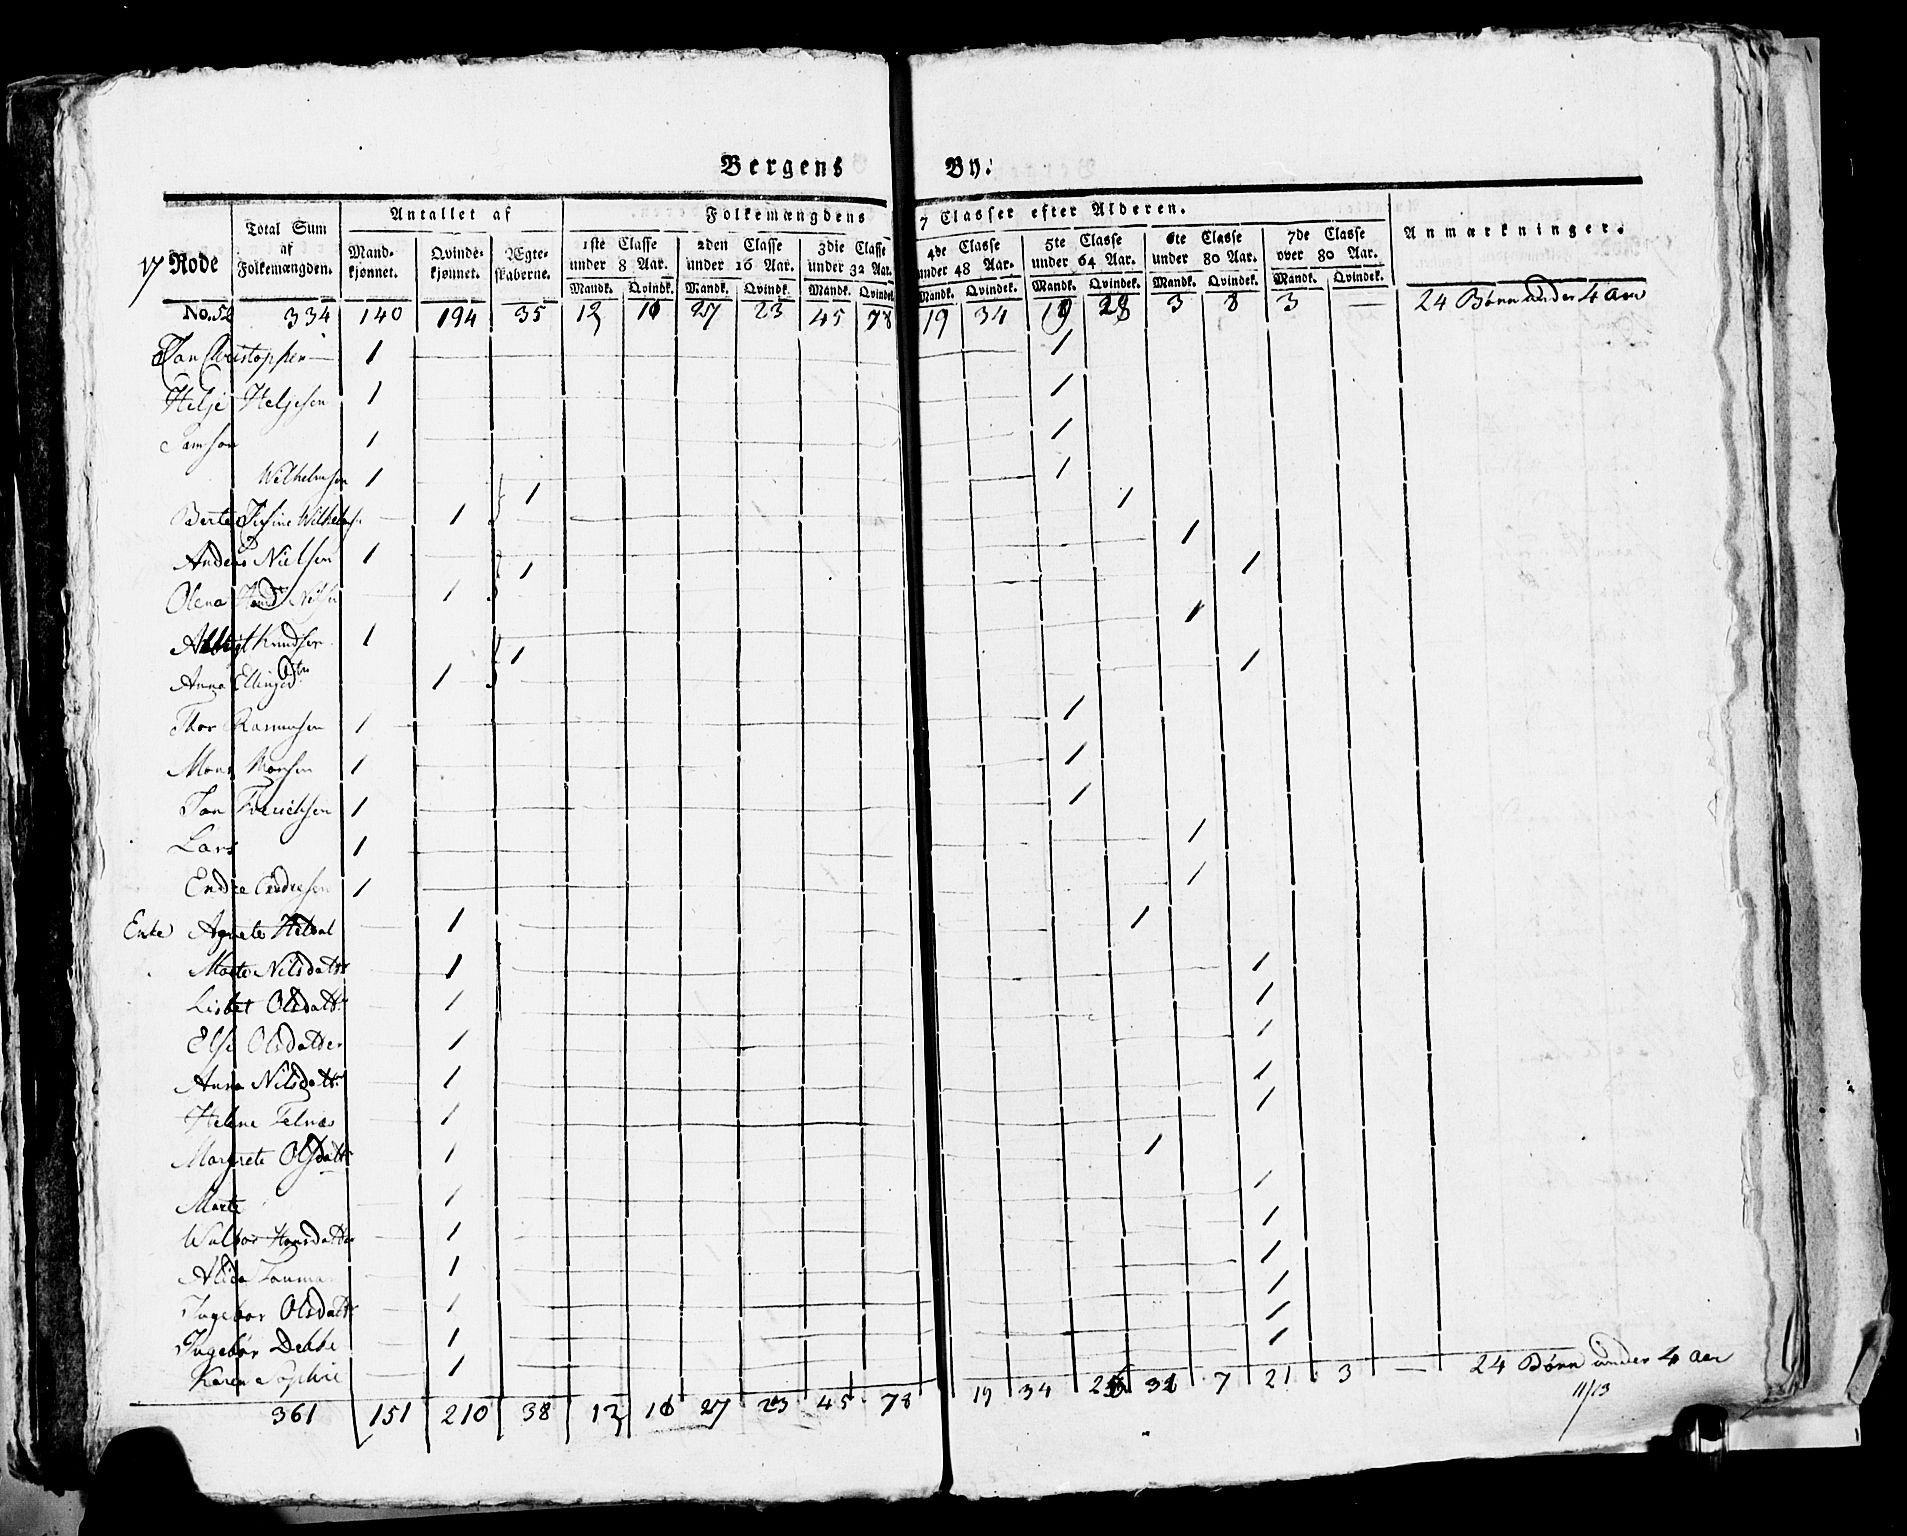 Bergens By.
Antallet af Folkemængdens 7 Classer efter Alderen.
17 Rode Total Sum af Folkemængden. Mandkjønnet. Qvindekjønnet. Ægteskaberne. 1ste Classe under 8 Aar. 2den Classe under 16 Aar. 3die Classe under 32 Aar. 4de Classe under 48 Aar. 5te Classe under 64 Aar. 6te Classe under 80 Aar. 7de Classe over 80 Aar. Anmærkninger.
Mandk. Qvindk. Mandk. Qvindk. Mandk. Qvindek. Mandk. Qvindek. Mandk. Qvindek. Mandk. Qvindek. Mandk. Qvindek.
No. 52 334 140 194 35 12 16 27 23 45 78 19 34 28 3 8 3 — 24 Børn under 4 Aar
Jan Christophen 1 1
Helje Heljesen 1 1
Samson 1 1
Wilhelmsen 1 1
1 1
Berte Wilhelms 1
Anders Nielsen 1 1
Olena 1 1 1
Knudsen 1 1
Anna Ellingsdtr 1 1 1
Thor Rasmusen 1 1
Mons Monsen 1 1
Jan 1 1
Lars 1 1
Endre Endresen 1 1
Enke Agnete 1 1
Marte Nilsdattr 1 1
Lisbet Olsdattr 1 1
Else Olsdatter 1 1
Anna Nilsdattr 1 1
Helene Telnæs 1 1
Margrete Olsdattr 1 1
Marte 1 1
Walbor Hansdatter 1 1
Alida 1 1
Ingebor Olsdattr 1 1
Ingebor Debbe 1 1
Karen Sophie 1 1
361 151 210 38 12 16 27 23 45 78 19 34 7 21 3 — 24 Børn under 4 Aar
11/13